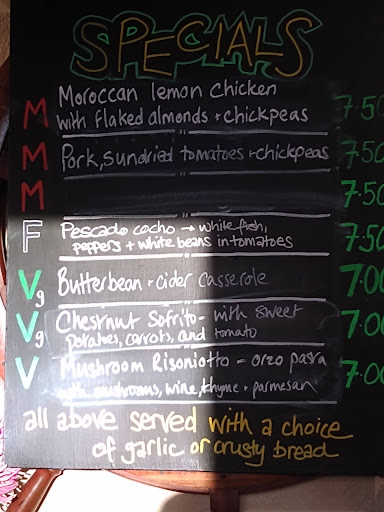 SPECIALS
M Moroccan lemon chicken 7.50
with flaked almonds + chickpeas
M Pork, sundried tomatoes + chickpeas 7.50
M 7.50
F Pescado cocho → white fish, 7.50
peppers + white beans in tomatoes
Vg Butterbean + cider casserole 7.00
Vg Chestnut Sofrito - with sweet 7.00
potatoes, carrots, and tomato
V Mushroom Risoniotto - orzo pasta 7.00
with mushrooms, wine, thyme + parmesan
all above served with a choice
of garlic or crusty bread